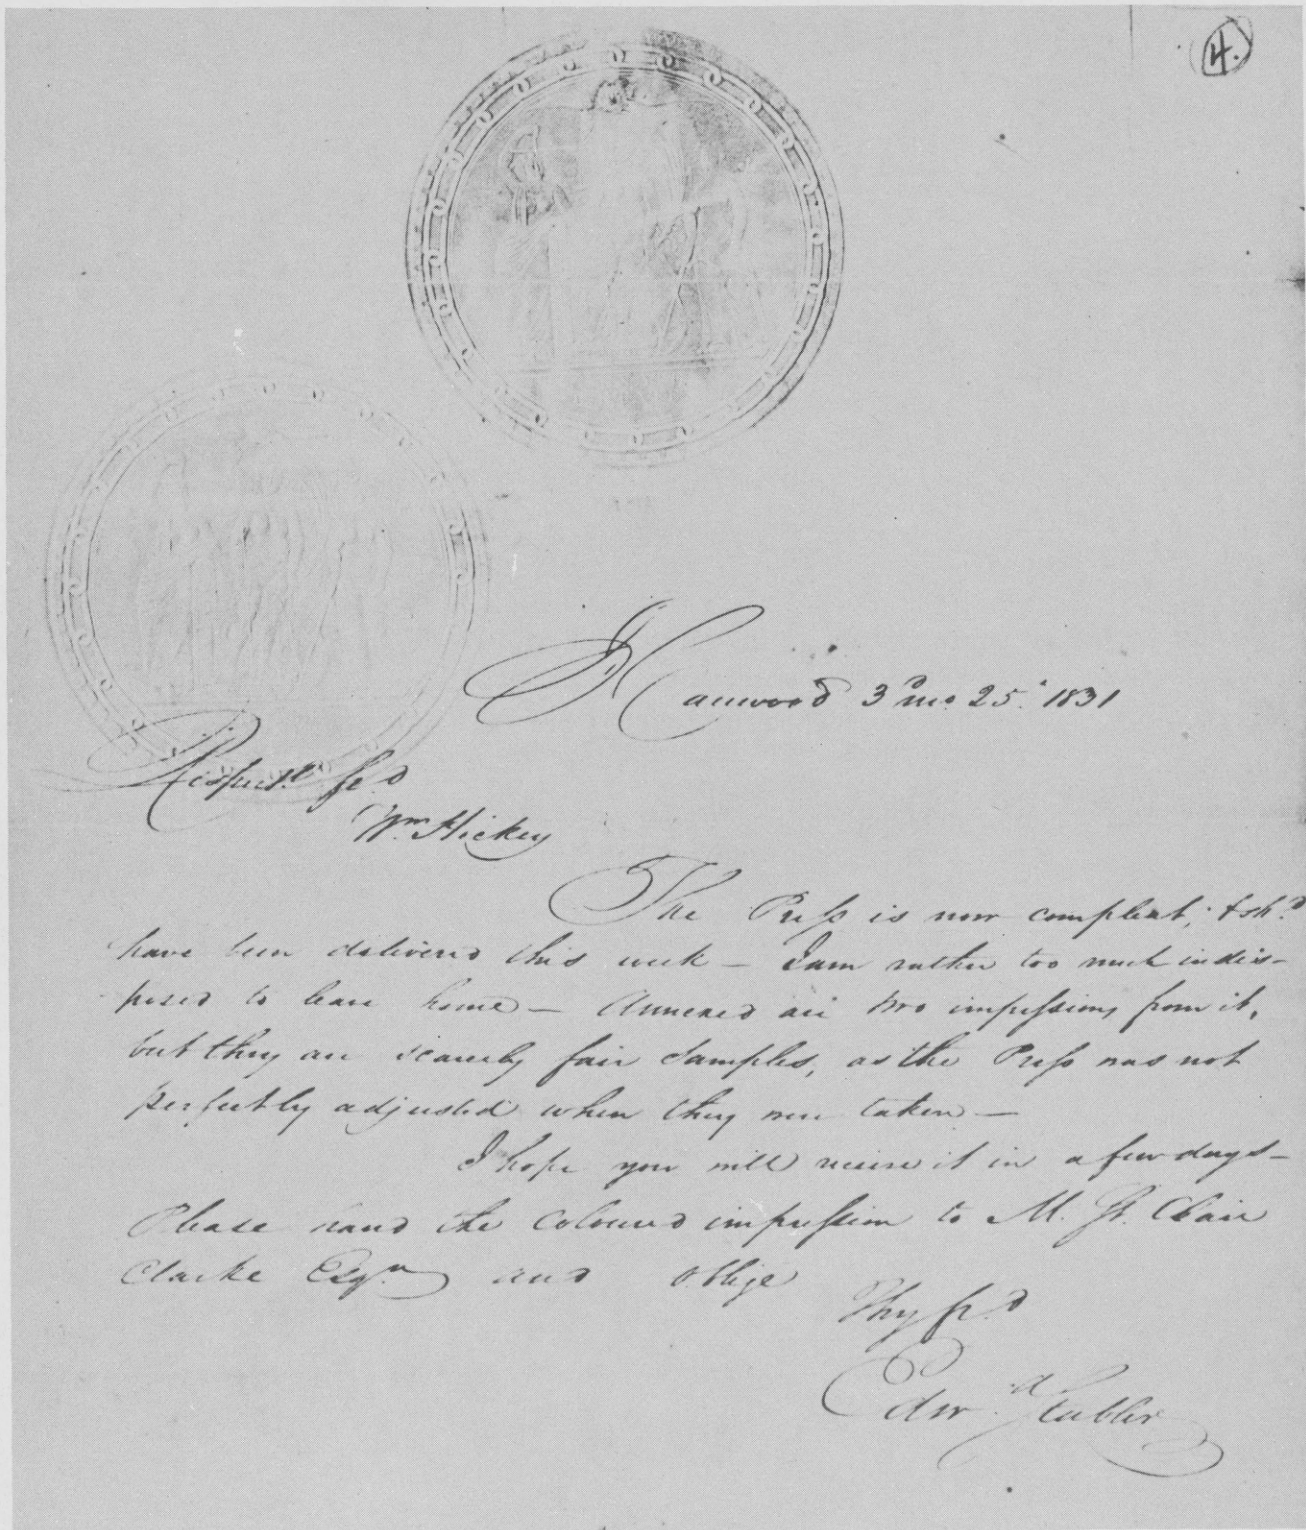 4.
Harewood 3d mo. 25. 1831
Respectd frd
Wm. Hickey
The Press is now compleat, & shd
have been delivered this week — I am rather too much indis-
posed to leave home — Annexed are two impressions from it,
but they are scarcely fair Samples, as the Press was not
perfectly adjusted when they were taken —
I hope you will receive it in a few days —
Please hand the Coloured impression to M. St. Clair
Clarke Esqr. and oblige
Thy frd
Edwd. Stabler